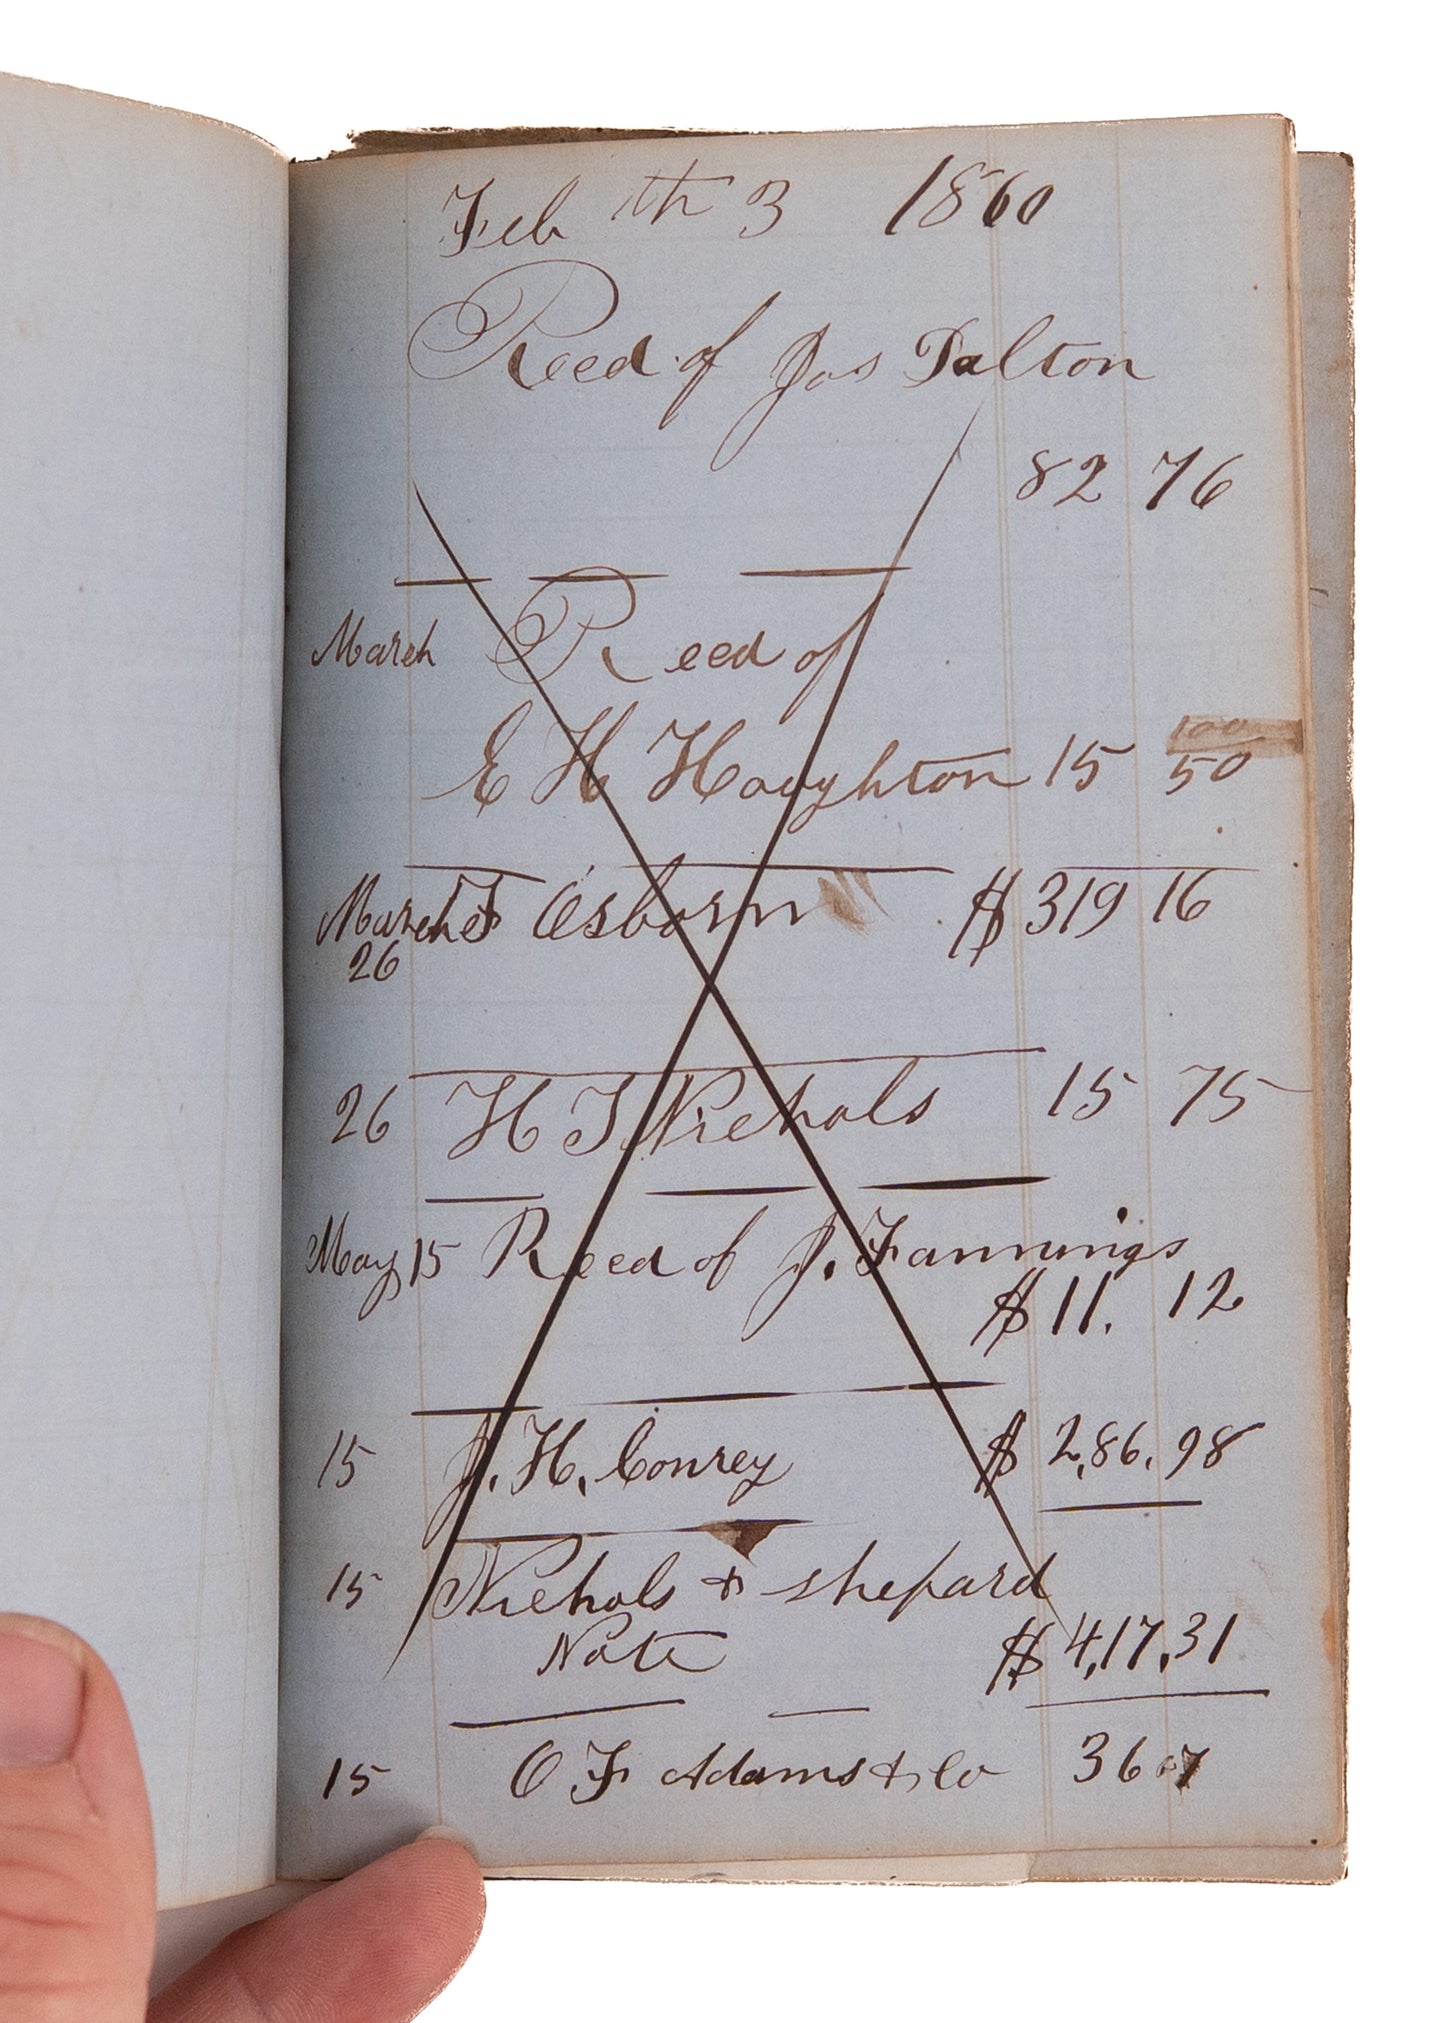 Feb th 3 1860
Recd of Jas Dalton
82 76
March Recd of
100
E H Houghton 15 50
March F Osborn $ 319 16
26
26 H T Nichols 15 75
May 15 Recd of J. Fannings
$ 11. 12
15 J. H. Conrey $ 2,86. 98
15 Nichols & Shepard
Note $ 4,17,31
15 O F Adams & Co 36 07